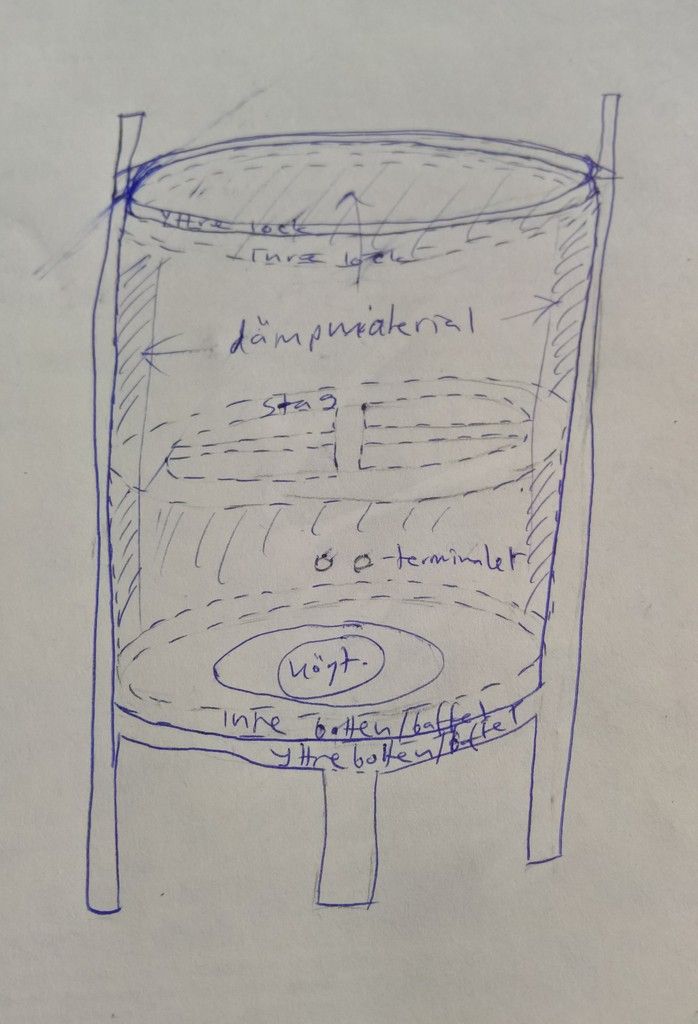 Yttre lock
Inre lock
dämpmaterial
stag
terminaler
högt.
inre botten/baffel
Yttre botten/baffel